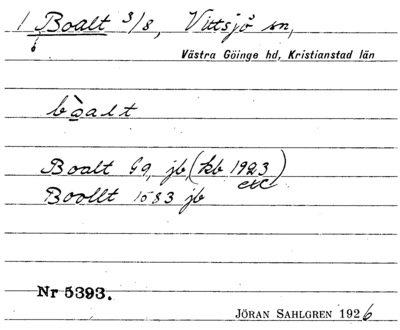 1 Boalt 3/8, Vittsjö sn,
Västra Göinge hd, Kristianstad län
bòalt
Boalt G9, jb, (kb 1923)
etc
Boollt 1583 jb
Nr 5393.
JÖRAN SAHLGREN 1926